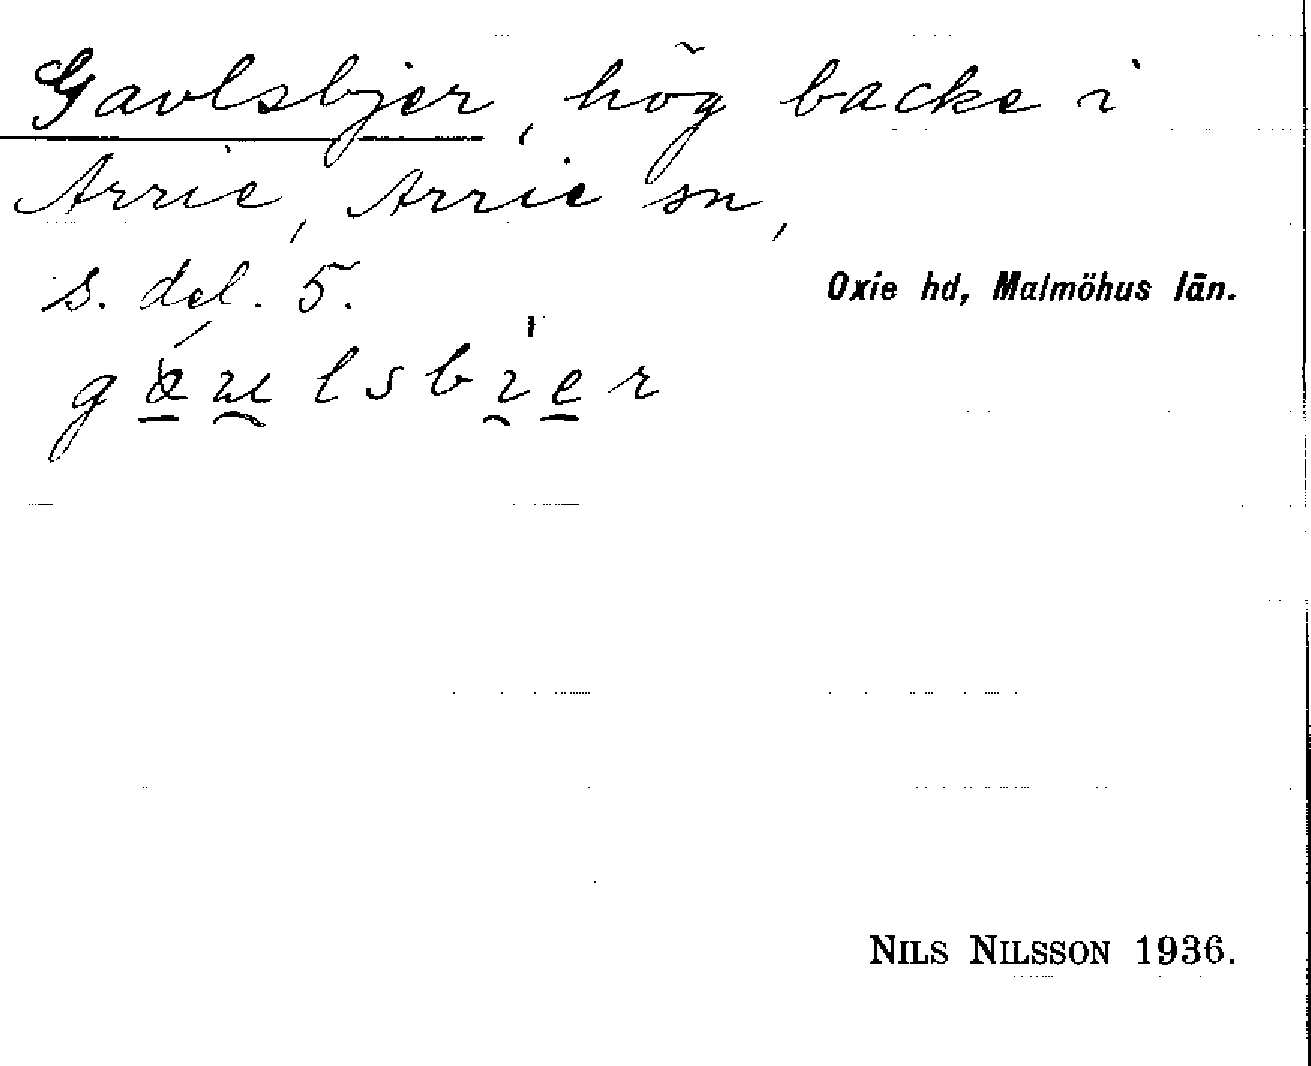 Gavlsbjer, hög backe i
Arrie, Arrie sn,
s. del. 5.
Oxie hd, Malmöhus län.
NILS NILSSON 1936.